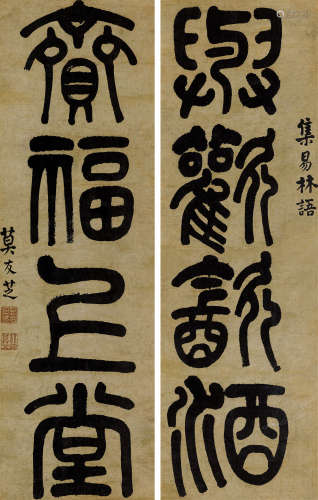 集易林語
與歡㱃酒
齎福上堂
莫友芝